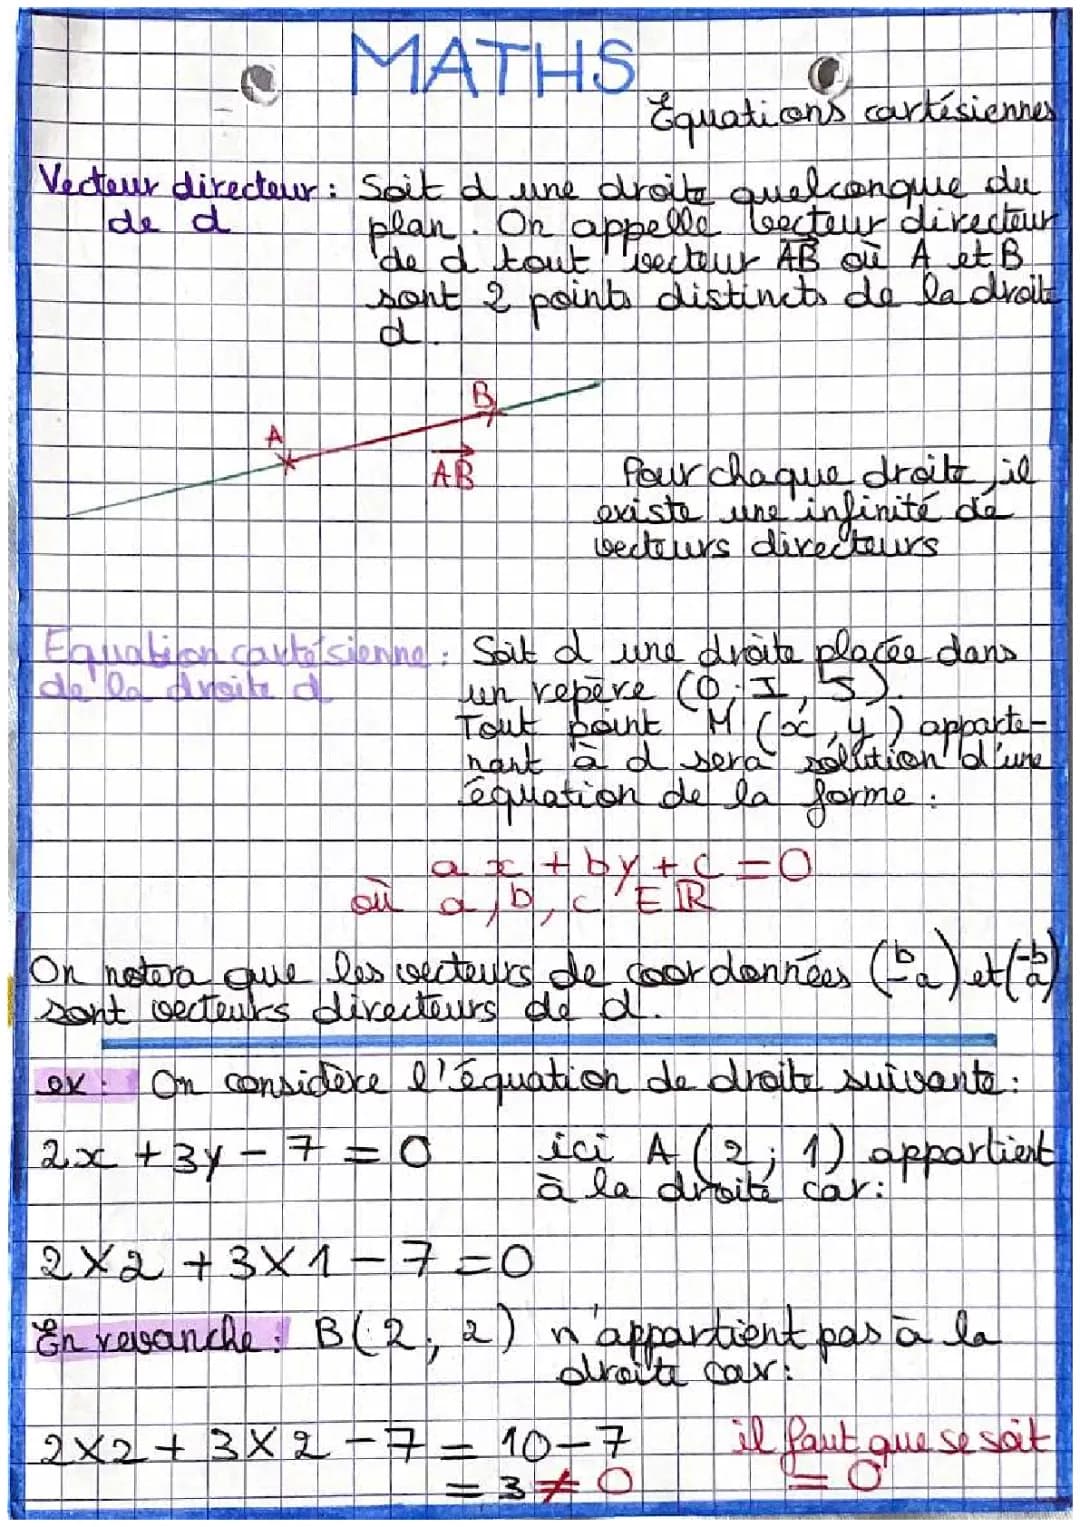 MATHS
Equations cartésiennes
Vecteur directeur : Soit d une droite quelconque du
de d plan. On appelle vecteur directeur
de d tout vecteur AB où A et B
sont 2 points distincts de la droite
d.
A
B
AB
Pour chaque droite, il
existe une infinité de
vecteurs directeurs
Equation cartésienne : Soit d une droite placée dans
de la droite d un repère (O, I, J).
Tout point M (x, y) apparte-
nant à d sera solution d'une
équation de la forme :
ax + by + c = 0
où a, b, c ∈ ℝ
On notera que les vecteurs de coordonnées (b -a) et (-b a)
sont vecteurs directeurs de d.
ex : On considère l'équation de droite suivante :
2x + 3y - 7 = 0 ici A (2 ; 1) appartient
à la droite car :
2×2 + 3×1 - 7 = 0
En revanche : B(2 ; 2) n'appartient pas à la
droite car :
2×2 + 3×2 - 7 = 10 - 7 il faut que se soit
= 3 ≠ 0 = 0